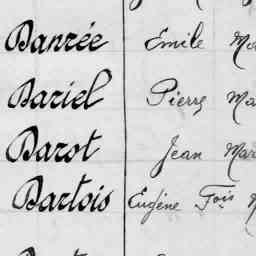 Danrée Emile
Dariel Pierre
Darot Jean Mar
Dartois Eugène Fois